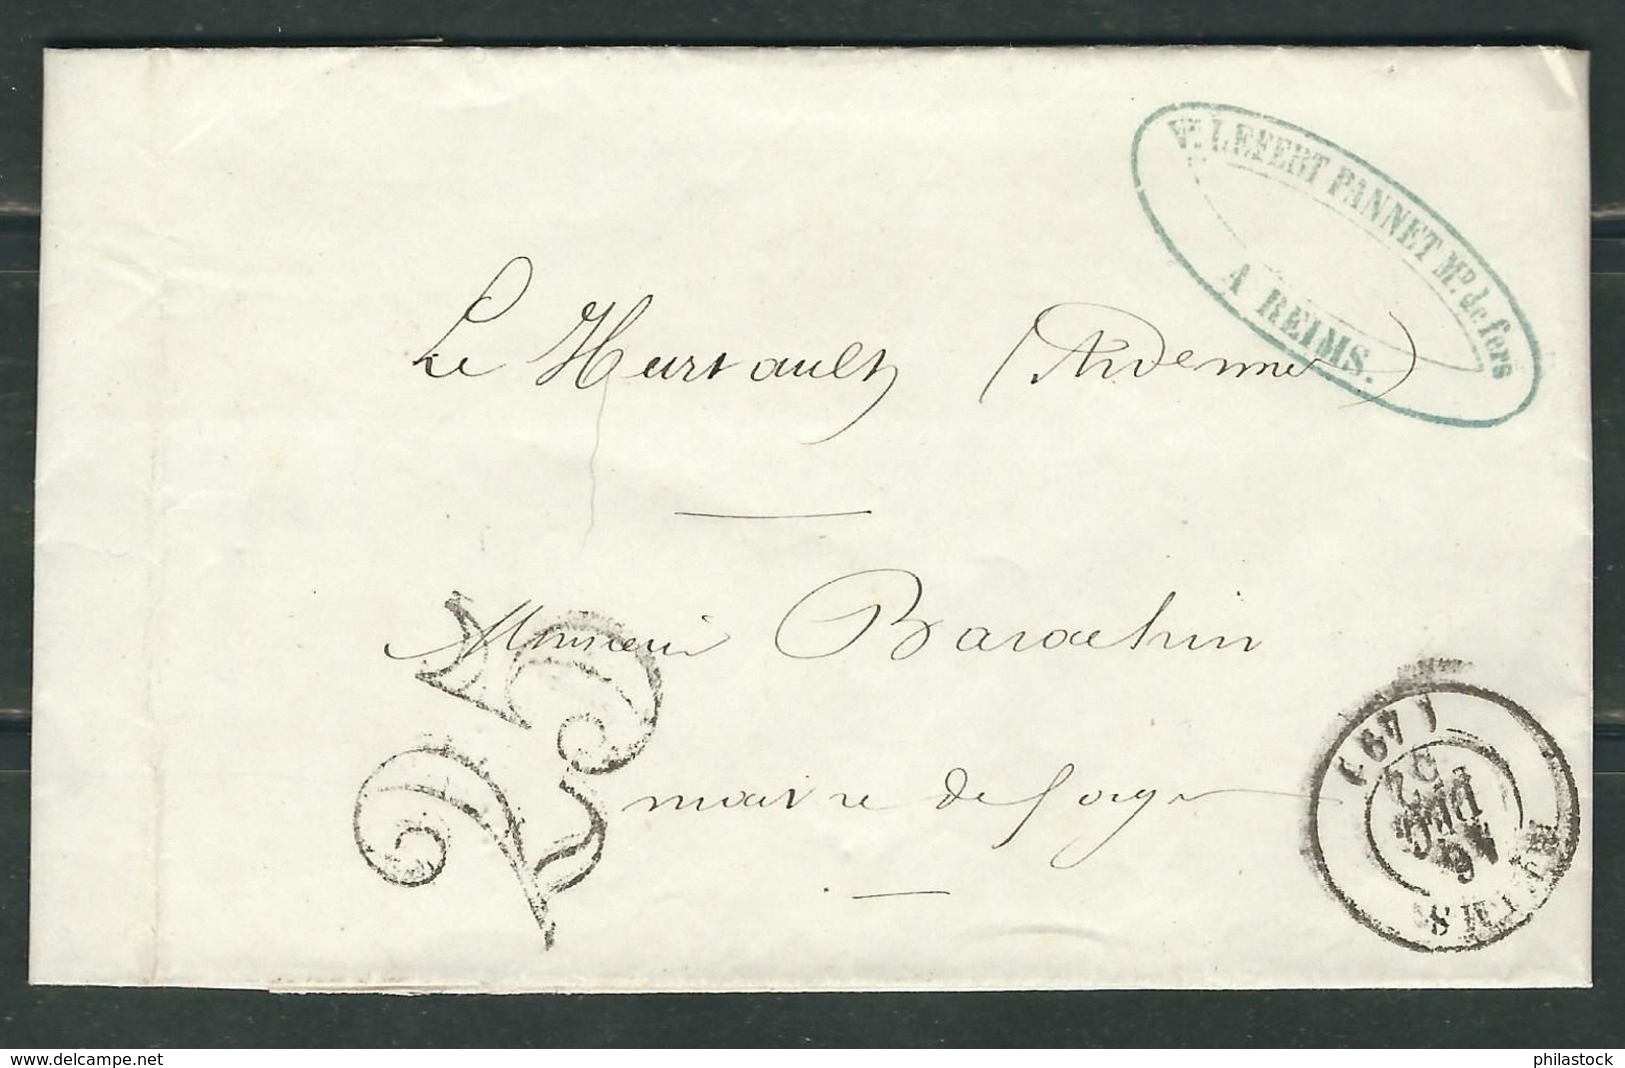 Vve. LEFERT PANNET Md. de fers
A REIMS.
Le Hurtault (Ardennes)
Monsieur Barachin
maitre de forges
25
REIMS
(49)
16
DEC
52
www.delcampe.net
philastock